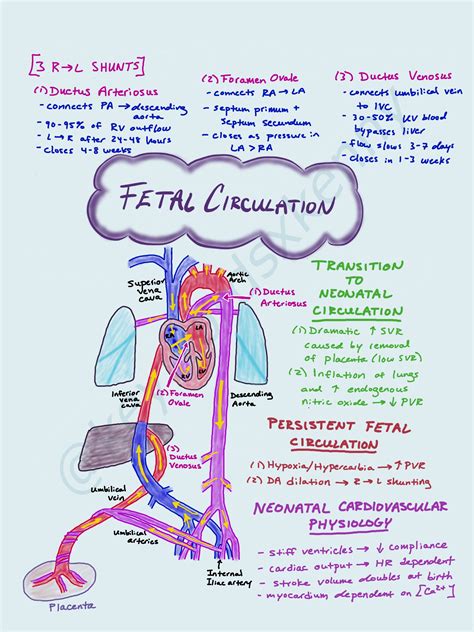 [3 R→L SHUNTS]
(1) Ductus Arteriosus
- connects PA → descending
aorta
- 90-95% of RV outflow
- L→R after 24-48 hours
- closes 4-8 weeks
(2) Foramen Ovale
- connects RA → LA
- septum primum +
Septum Secundum
- closes as pressure in
LA > RA
(3) Ductus Venosus
- connects umbilical vein
to IVC
- 30-50% UV blood
bypasses liver
- flow slows 3-7 days
- closes in 1-3 weeks
FETAL CIRCULATION
Superior
vena
cava
Aortic
Arch
(1) Ductus
Arteriosus
RA
LA
RV
LV
(2) Foramen
Ovale
Inferior
vena
cava
Descending
Aorta
(3) Ductus
Venosus
Umbilical
vein
Umbilical
arteries
Internal
Iliac artery
Placenta
TRANSITION
TO
NEONATAL
CIRCULATION
(1) Dramatic ↑ SVR
caused by removal
of placenta (low SVR)
(2) Inflation of lungs
and ↑ endogenous
nitric oxide → ↓ PVR
PERSISTENT FETAL
CIRCULATION
(1) Hypoxia/Hypercarbia → ↑ PVR
(2) DA dilation → R→L shunting
NEONATAL CARDIOVASCULAR
PHYSIOLOGY
- stiff ventricles → ↓ compliance
- cardiac output → HR dependent
- stroke volume doubles at birth
- myocardium dependent on [Ca²⁺]